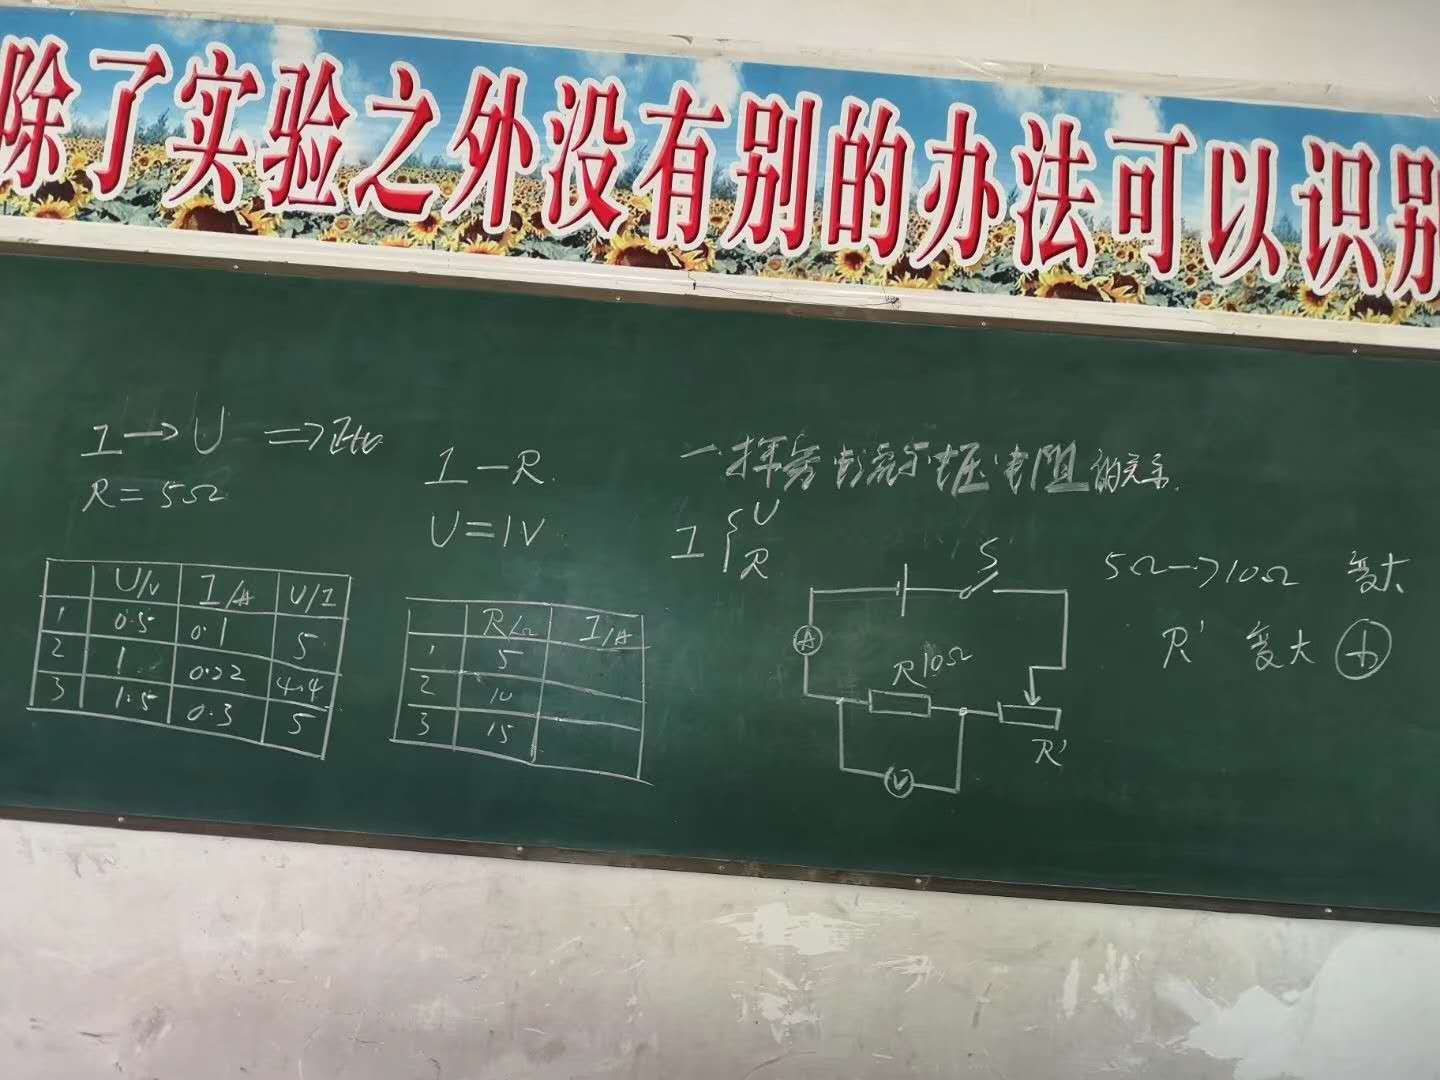 除了实验之外没有别的办法可以识别
I→U ⇒正比
R=5Ω
U/V I/A U/I
1 0.5 0.1 5
2 1 0.22 4.4
3 1.5 0.3 5
I-R
U=1V
R/Ω I/A
1 5
2 10
3 15
一、探究电流与电压电阻的关系.
I { U
R
S
A
R 10Ω
V
R'
5Ω→10Ω 变大
R' 变大 大